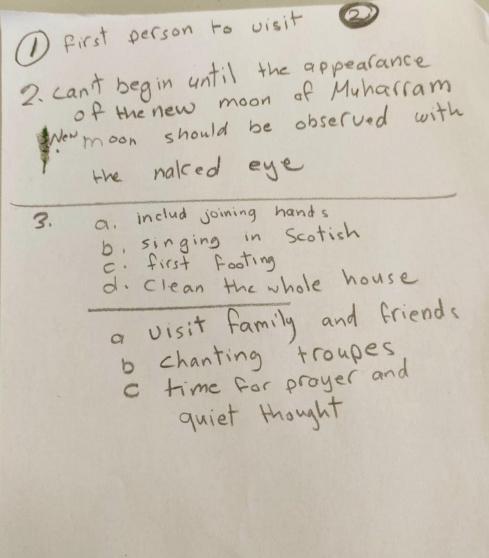 2
1 first person to visit
2. can't begin until the appearance
of the new moon of Muharram
New moon should be observed with
the naked eye
3. a. includ joining hands
b. singing in Scotish
c. first footing
d. Clean the whole house
a visit family and friends
b chanting troupes
c time for prayer and
quiet thought